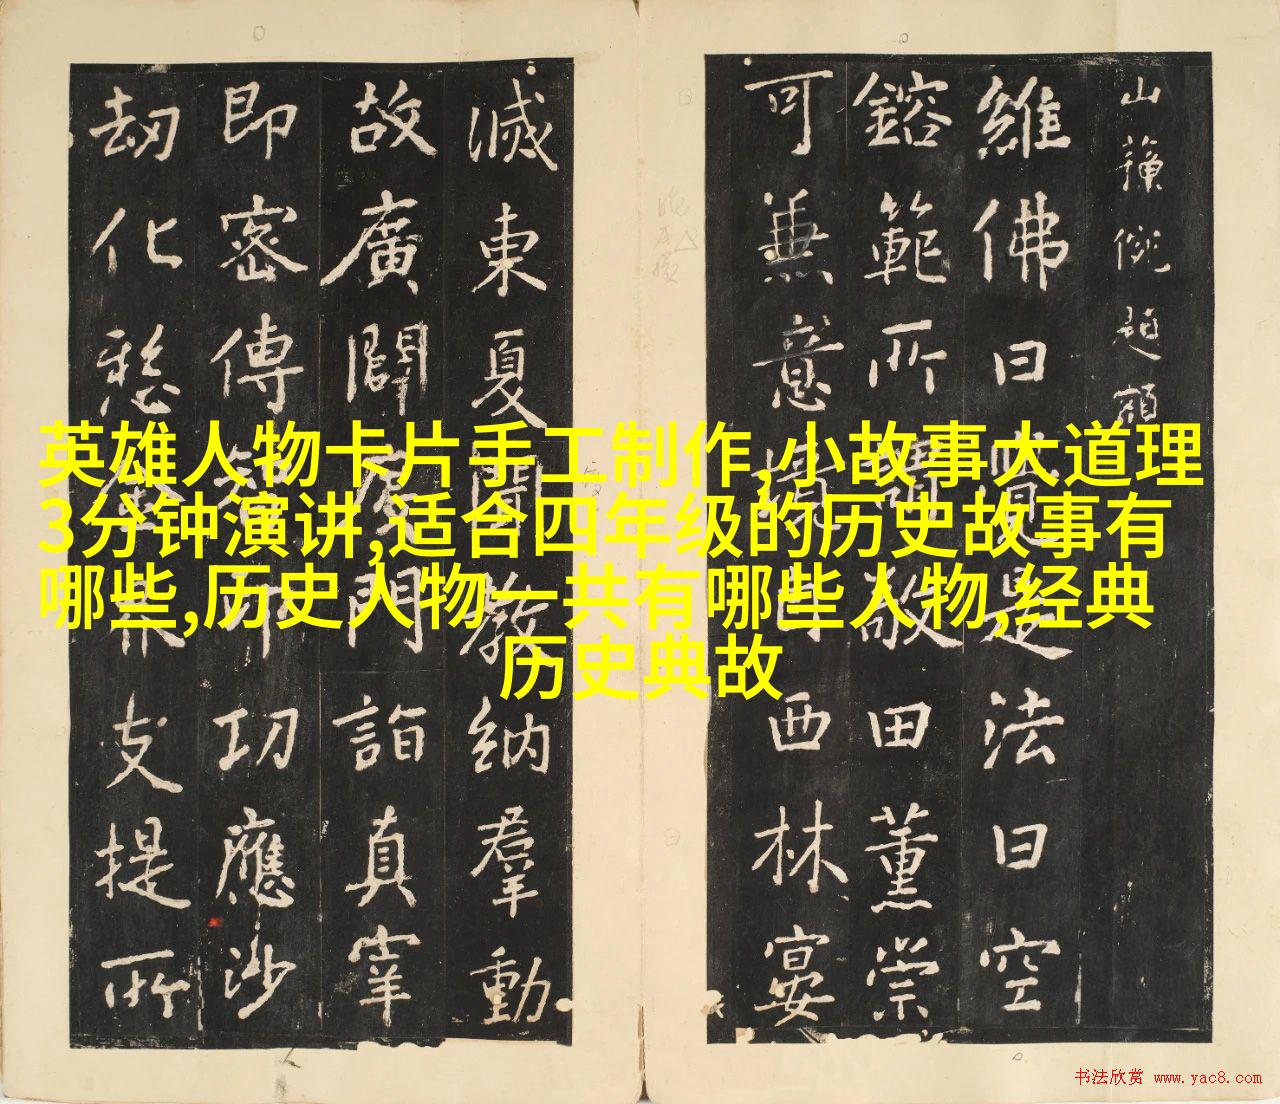 山蘓從趙額
維佛曰寶是法日空
鎔範所謂敬田薰崇
可兼意西林宴
滅東夏闡教納羣動
故廣闢度門詣真宰
即密傳印功應沙
刼化愁支提所
英雄人物卡片手工制作,小故事大道理
3分钟演讲,适合四年级的历史故事有
哪些,历史人物一共有哪些人物,经典
历史典故
书法欣赏 www.yac8.com